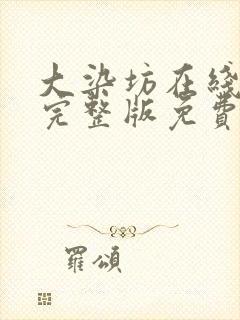 大染坊在綫
完整版免費
羅頌